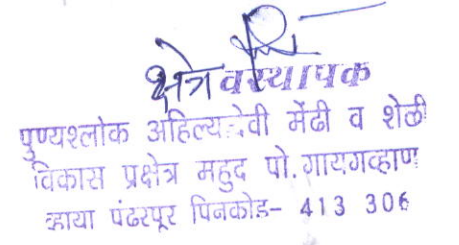 क्षेत्र वस्थापक
पुण्यश्लोक अहिल्यादेवी मेंढी व शेळी
विकास प्रक्षेत्र महुद पो. गायगव्हाण
व्हाया पंढरपूर पिनकोड- 413 306